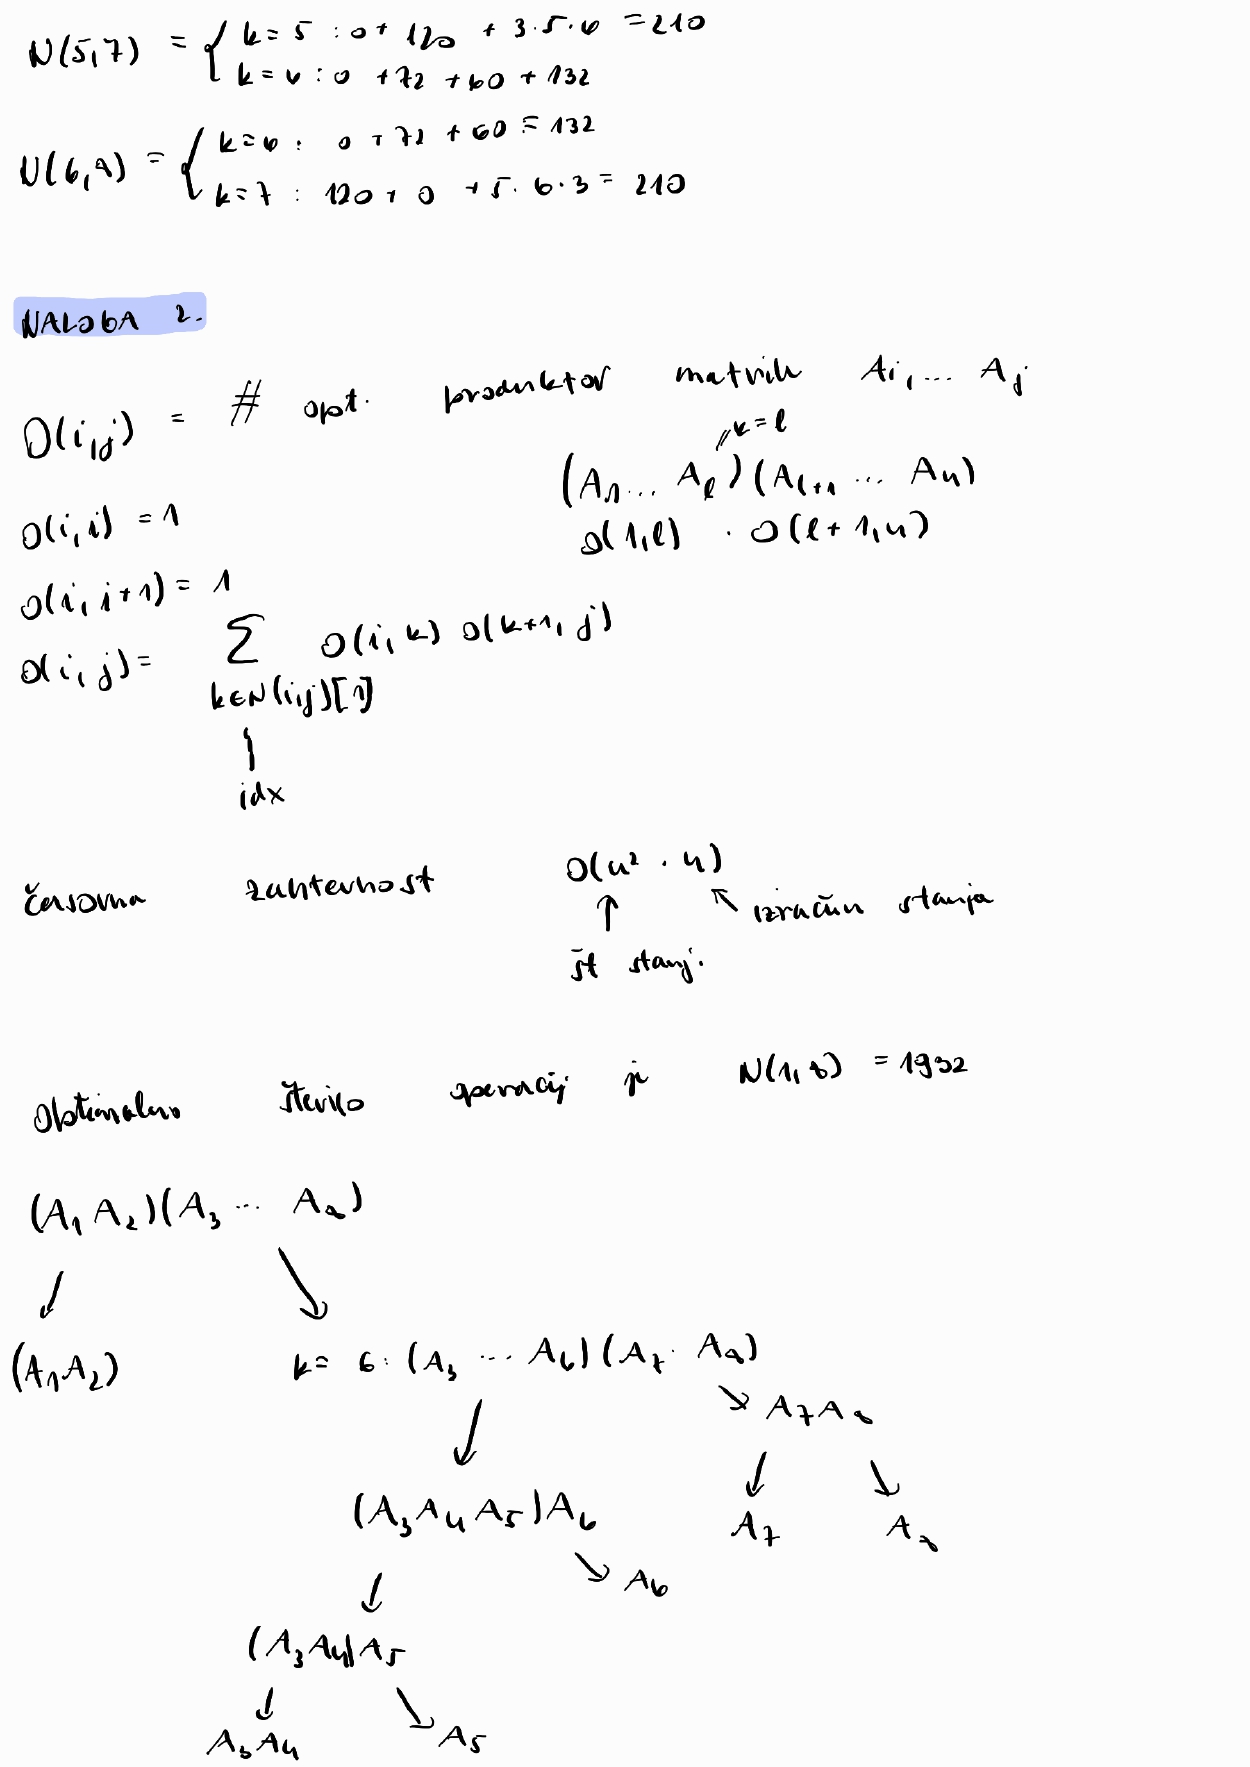 N(5,7) = { k=5 : 0+ 120 + 3·5·6 = 210
k=6 : 0 +72 +60 + 132
N(6,8) = { k=6 : 0 + 72 + 60 = 132
k=7 : 120 + 0 + 5·6·3 = 210
NALOGA 2.
O(i,j) = # opt. produktov matrik Ai,... Aj
k=l
(A1... Al)(Al+1 ... An)
O(i,i) = 1
O(1,l) · O(l+1,n)
O(i,i+1) = 1
O(i,j) = Σ O(i,k) O(k+1,j)
k∈N(i,j)[1]
idx
časovna zahtevnost O(n² · n)
izračun stanja
št stanj.
Obtimalno število operacij je N(1,8) = 1932
(A1 A2)(A3 ... A8)
(A1A2) k= 6: (A3 ... A6)(A7 · A8)
A7A8
(A3A4A5)A6 A7 A8
A6
(A3A4)A5
A3A4 A5